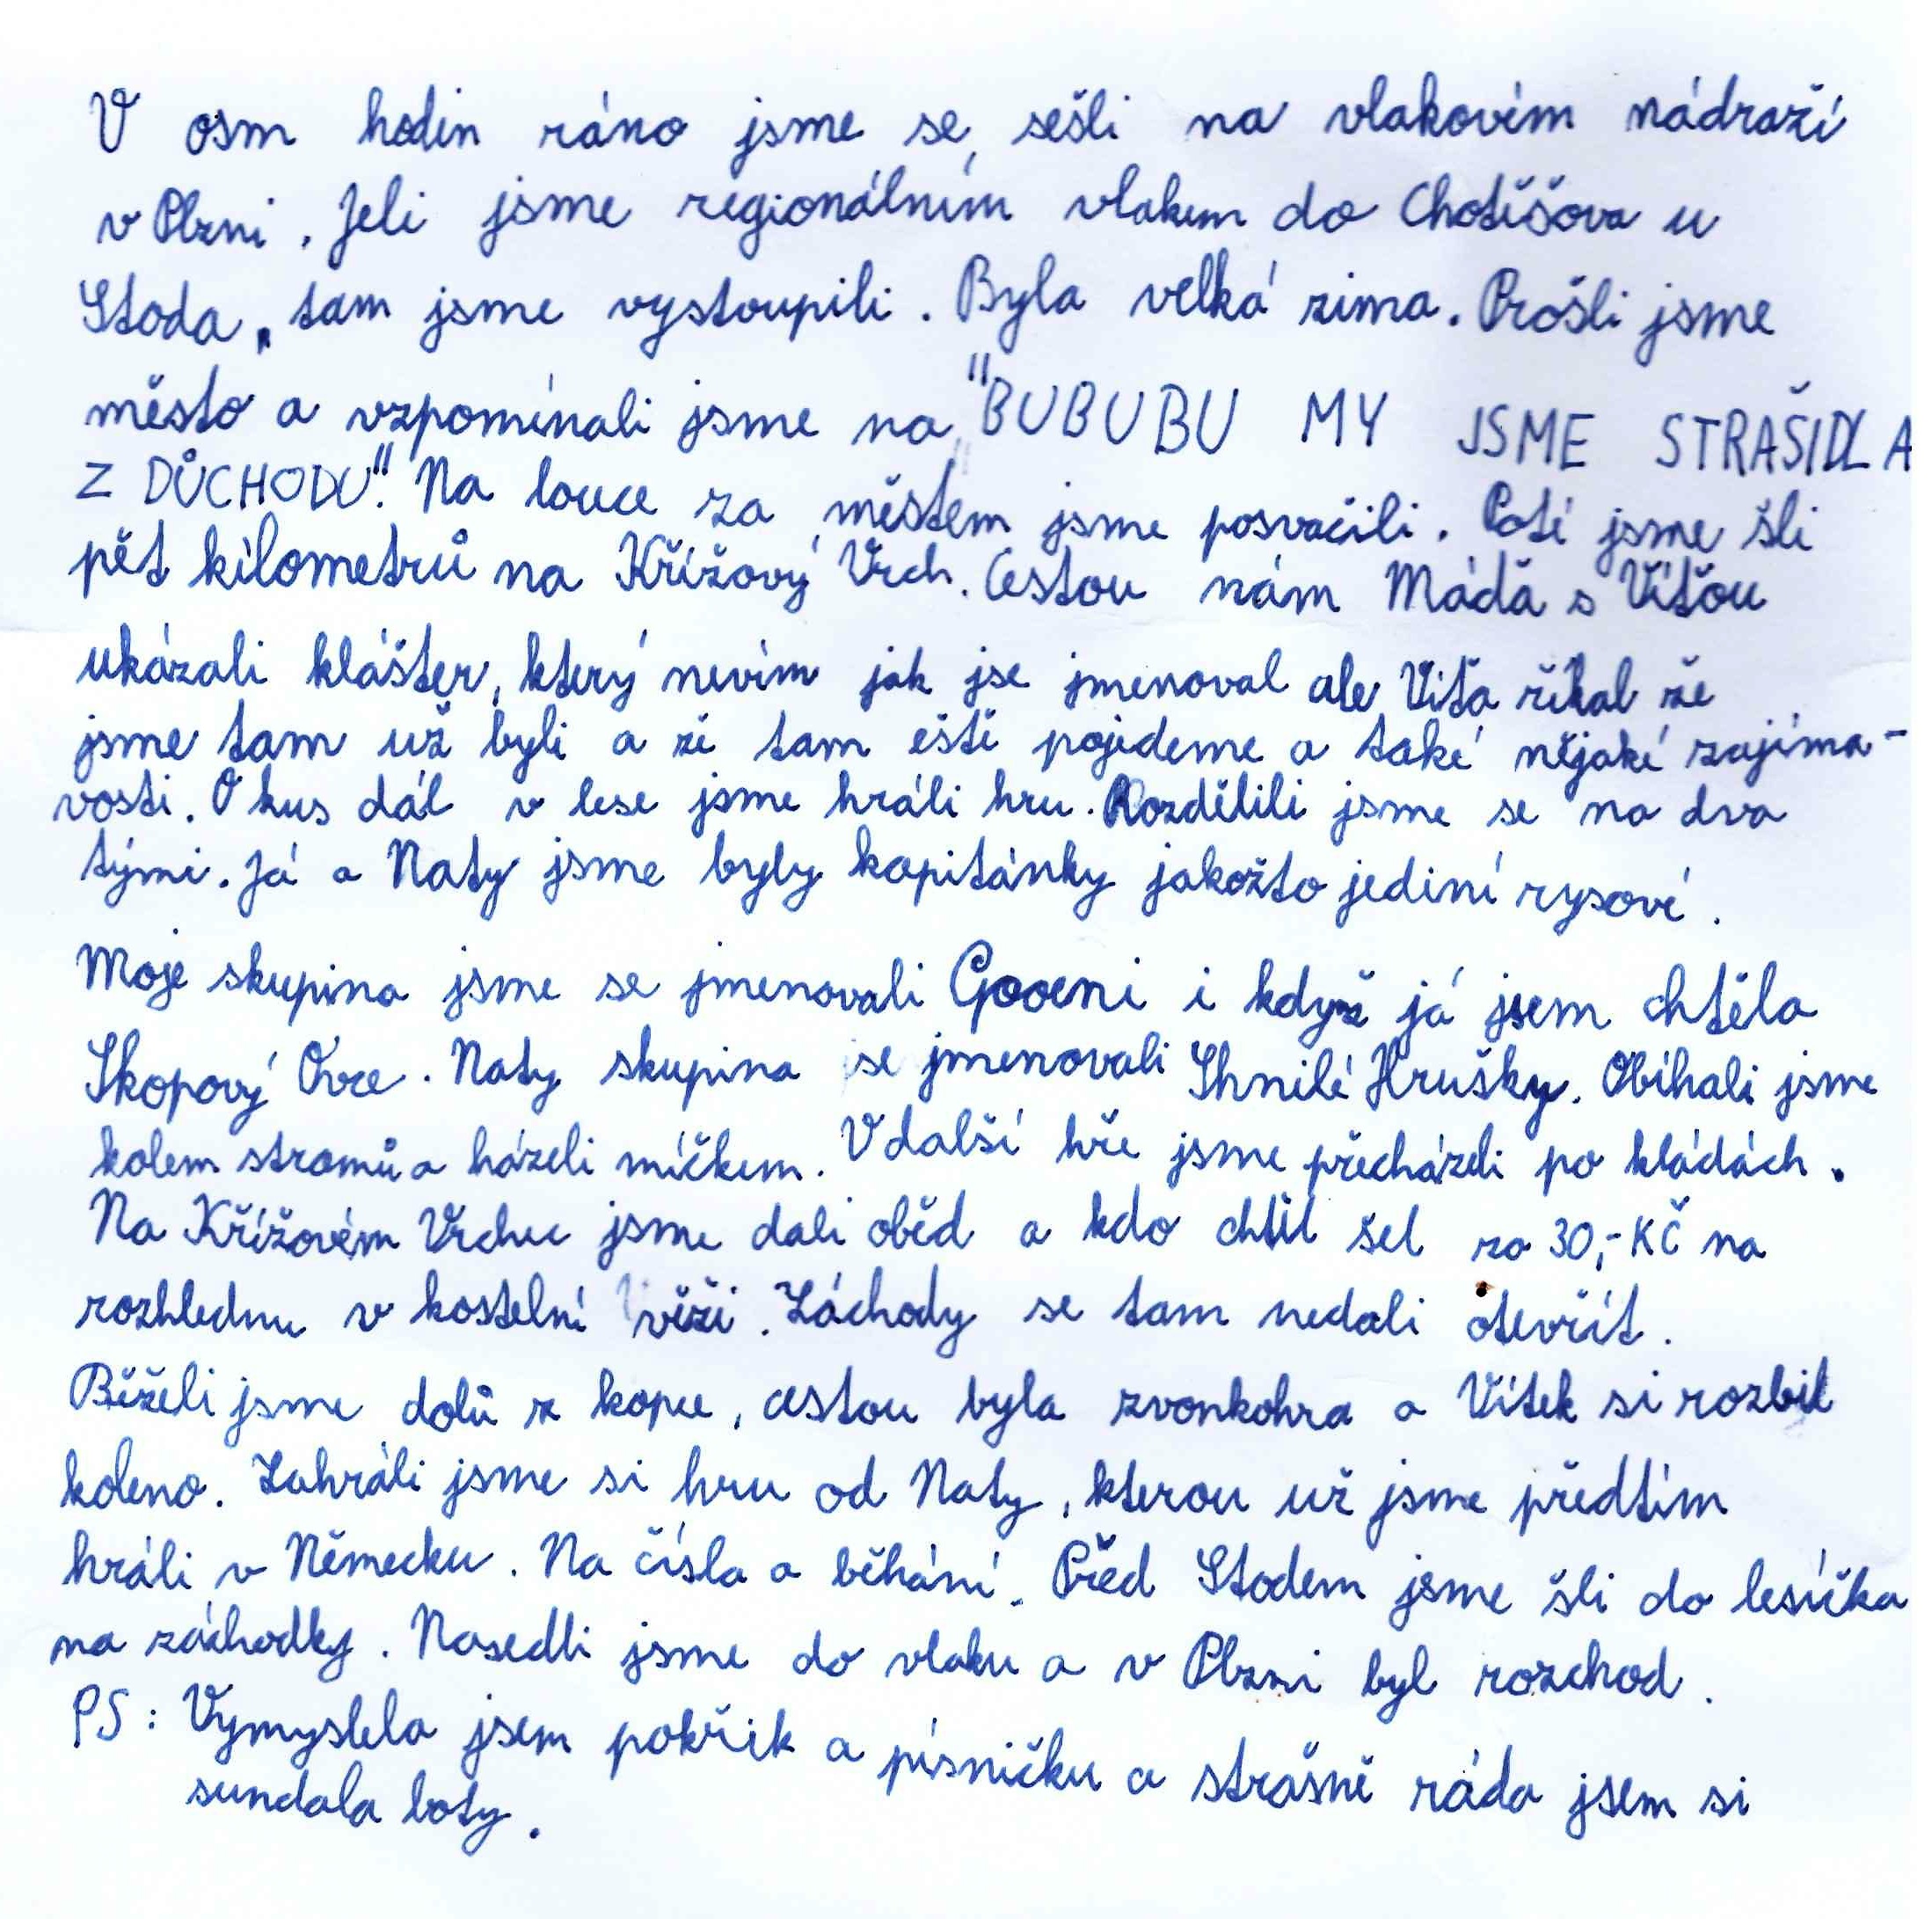 V osm hodin ráno jsme se sešli na vlakovím nádraží
v Plzni. Jeli jsme regionálním vlakem do Chotěšova u
Stoda, tam jsme vystoupili. Byla velká zima. Prošli jsme
město a vzpomínali jsme na "BUBUBU MY JSME STRAŠIDLA
Z DŮCHODU". Na louce za městem jsme posvačili. Poté jsme šli
pět kilometrů na Křížový Vrch. Cestou nám Máďa s Víťou
ukázali klášter, který nevím jak jse jmenoval ale Víťa říkal že
jsme tam už byli a že tam eště pojedeme a také nějaké zajíma-
vosti. O kus dál v lese jsme hráli hru. Rozdělili jsme se na dva
tými. Já a Naty jsme byly kapitánky jakožto jediní rysové.
Moje skupina jsme se jmenovali i když já jsem chtěla
Skopový Ovce. Naty skupina se jmenovali Shnilé Hrušky. Obíhali jsme
kolem stromů a házeli míčkem. V další hře jsme přecházeli po kládách.
Na Křížovém Vrchu jsme dali oběd a kdo chtěl šel za 30,- KČ na
rozhlednu v kostelní věži. Záchody se tam nedali otevřít.
Běželi jsme dolů z kopce, cestou byla zvonkohra a Vítek si rozbil
koleno. Zahráli jsme si hru od Naty, kterou už jsme předtím
hráli v Německu. Na čísla a běhání. Před Stodem jsme šli do lesíčka
na záchodky. Nasedli jsme do vlaku a v Plzni byl rozchod.
PS: Vymyslela jsem pokřik a písničku a strašně ráda jsem si
sundala boty.